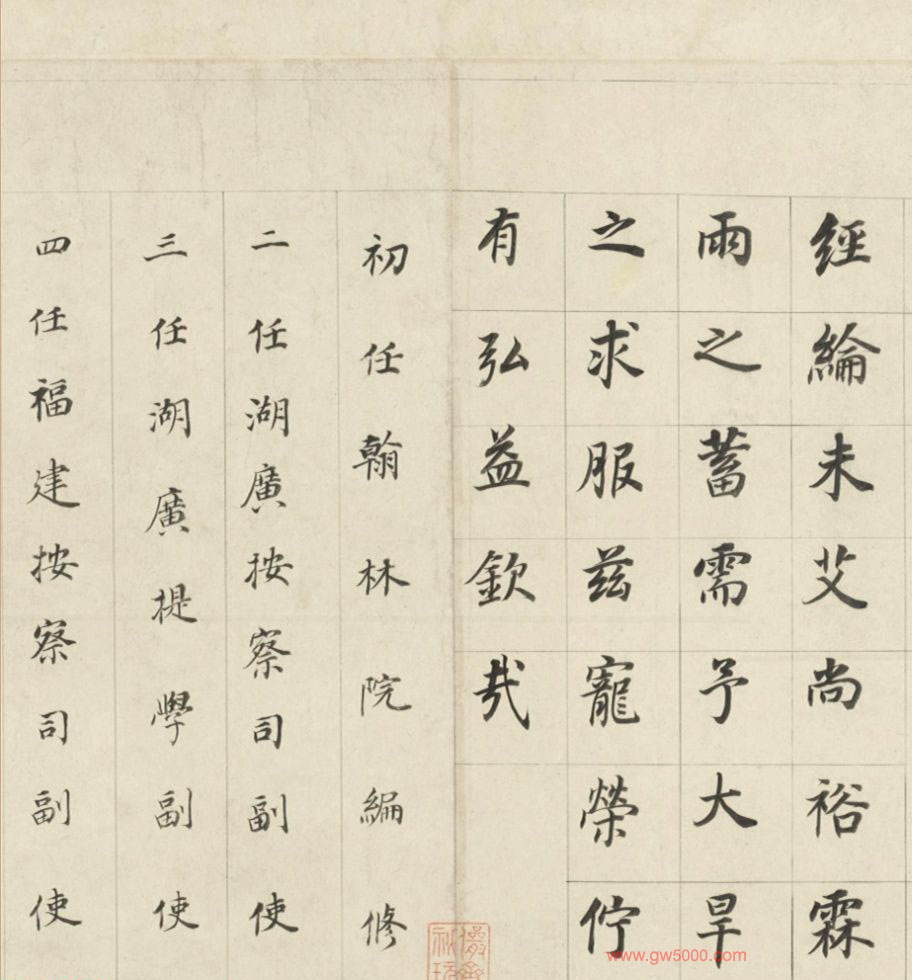 經綸未艾尚裕霖
雨之蓄需予大旱
之求服茲寵榮佇
有弘益欽哉
初任翰林院編修
二任湖廣按察司副使
三任湖廣提學副使
四任福建按察司副使
www.gw5000.com